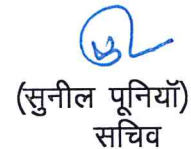 (सुनील पूनियॉ)
सचिव